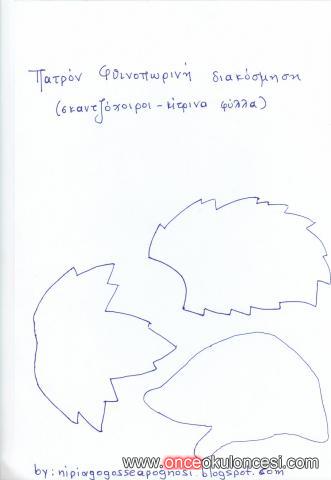 Πατρόν Φθινοπωρινή διακόσμηση
(σκαντζόχοιροι - κίτρινα φύλλα)
by: nipiagogosseapognosi.blogspot.com
www.onceokuloncesi.com